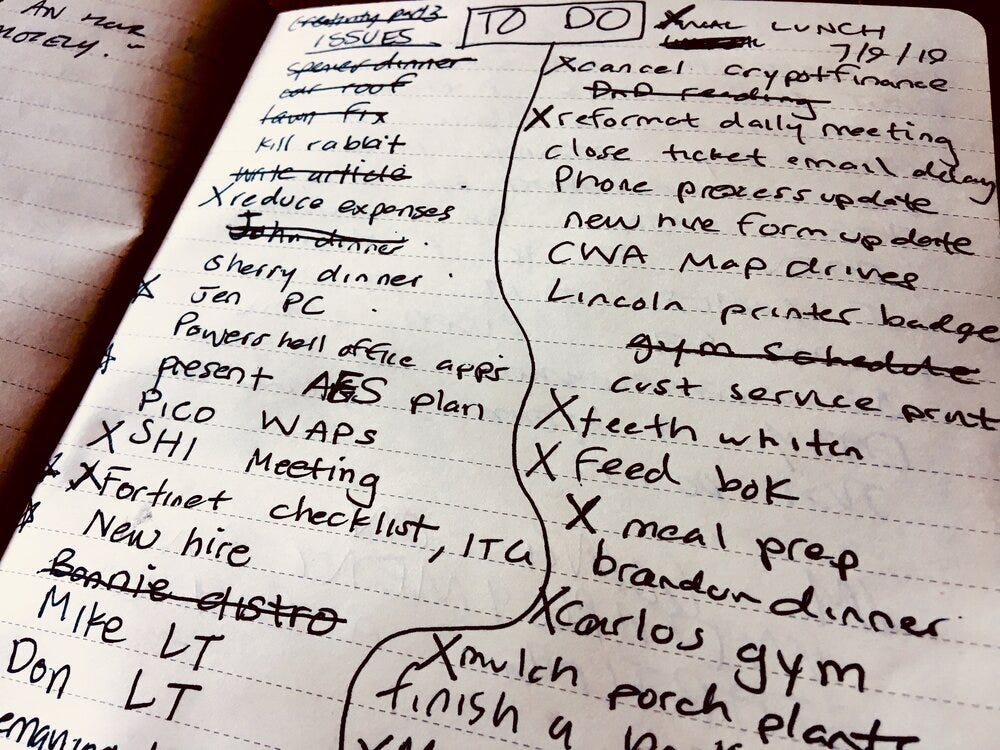 AN HOUR
MOTELY."
TO DO
creativity part 3
ISSUES
spencer dinner
car roof
lawn fix
kill rabbit
write article
X reduce expenses
John dinner
sherry dinner
X Jen PC
Powershell office apps
present AES plan
PICO WAPs
X SHI Meeting
X Fortinet checklist, ITG
New hire
Bonnie distro
Mike LT
Don LT
LUNCH
7/9/19
X cancel crypotfinance
DnD reading
X reformat daily meeting
close ticket email delay
Phone process update
new hire form update
CWA Map drives
Lincoln printer badge
gym schedule
cust service print
X teeth whiten
X Feed bok
X meal prep
brandon dinner
X Carlos gym
X mulch porch plant
finish a